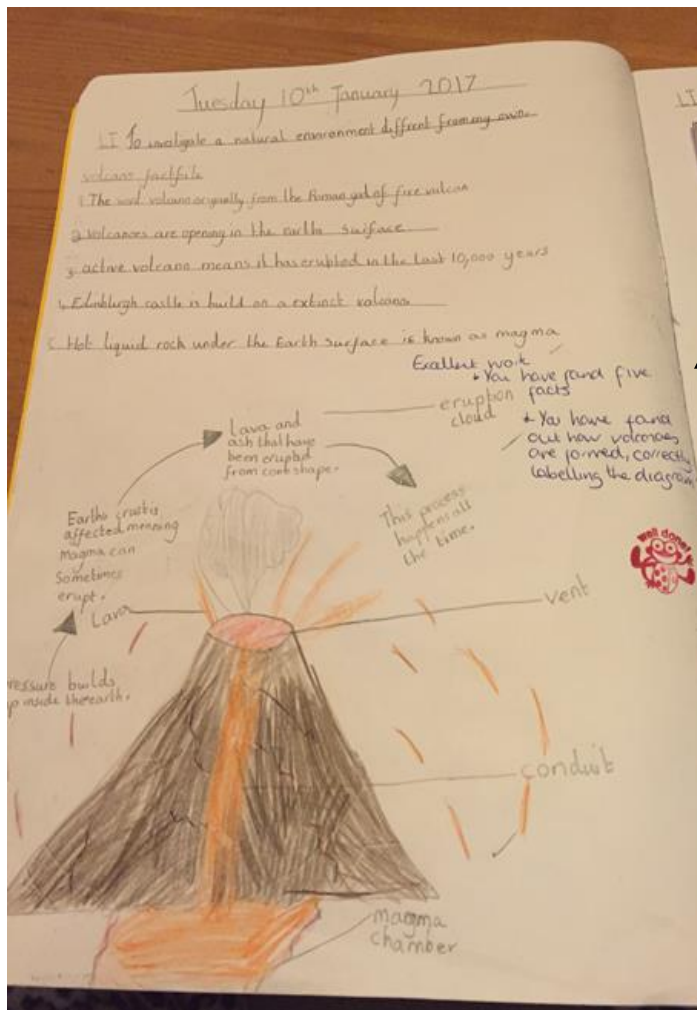 Tuesday 10th January 2017
LI To investigate a natural environment different from my own.
volcano factfile
1. The word volcano originally from the Roman god of fire vulcan
2. Volcanoes are opening in the earths surface
3. active volcano means it has erupted in the last 10,000 years
4. Edinburgh castle is build on a extinct volcano.
5. Hot liquid rock under the Earth surface is known as magma
Excellent work
You have found five
facts
You have found
out how volcanoes
are formed, correctly
labelling the diagram
eruption
cloud
Lava and
ash that have
been erupted
from cone shape.
This process
happens all
the time.
Earths crust is
affected meaning
Magma can
Sometimes
erupt.
Well done!
Lava
vent
ressure builds
p inside the earth.
conduit
magma
chamber
LI